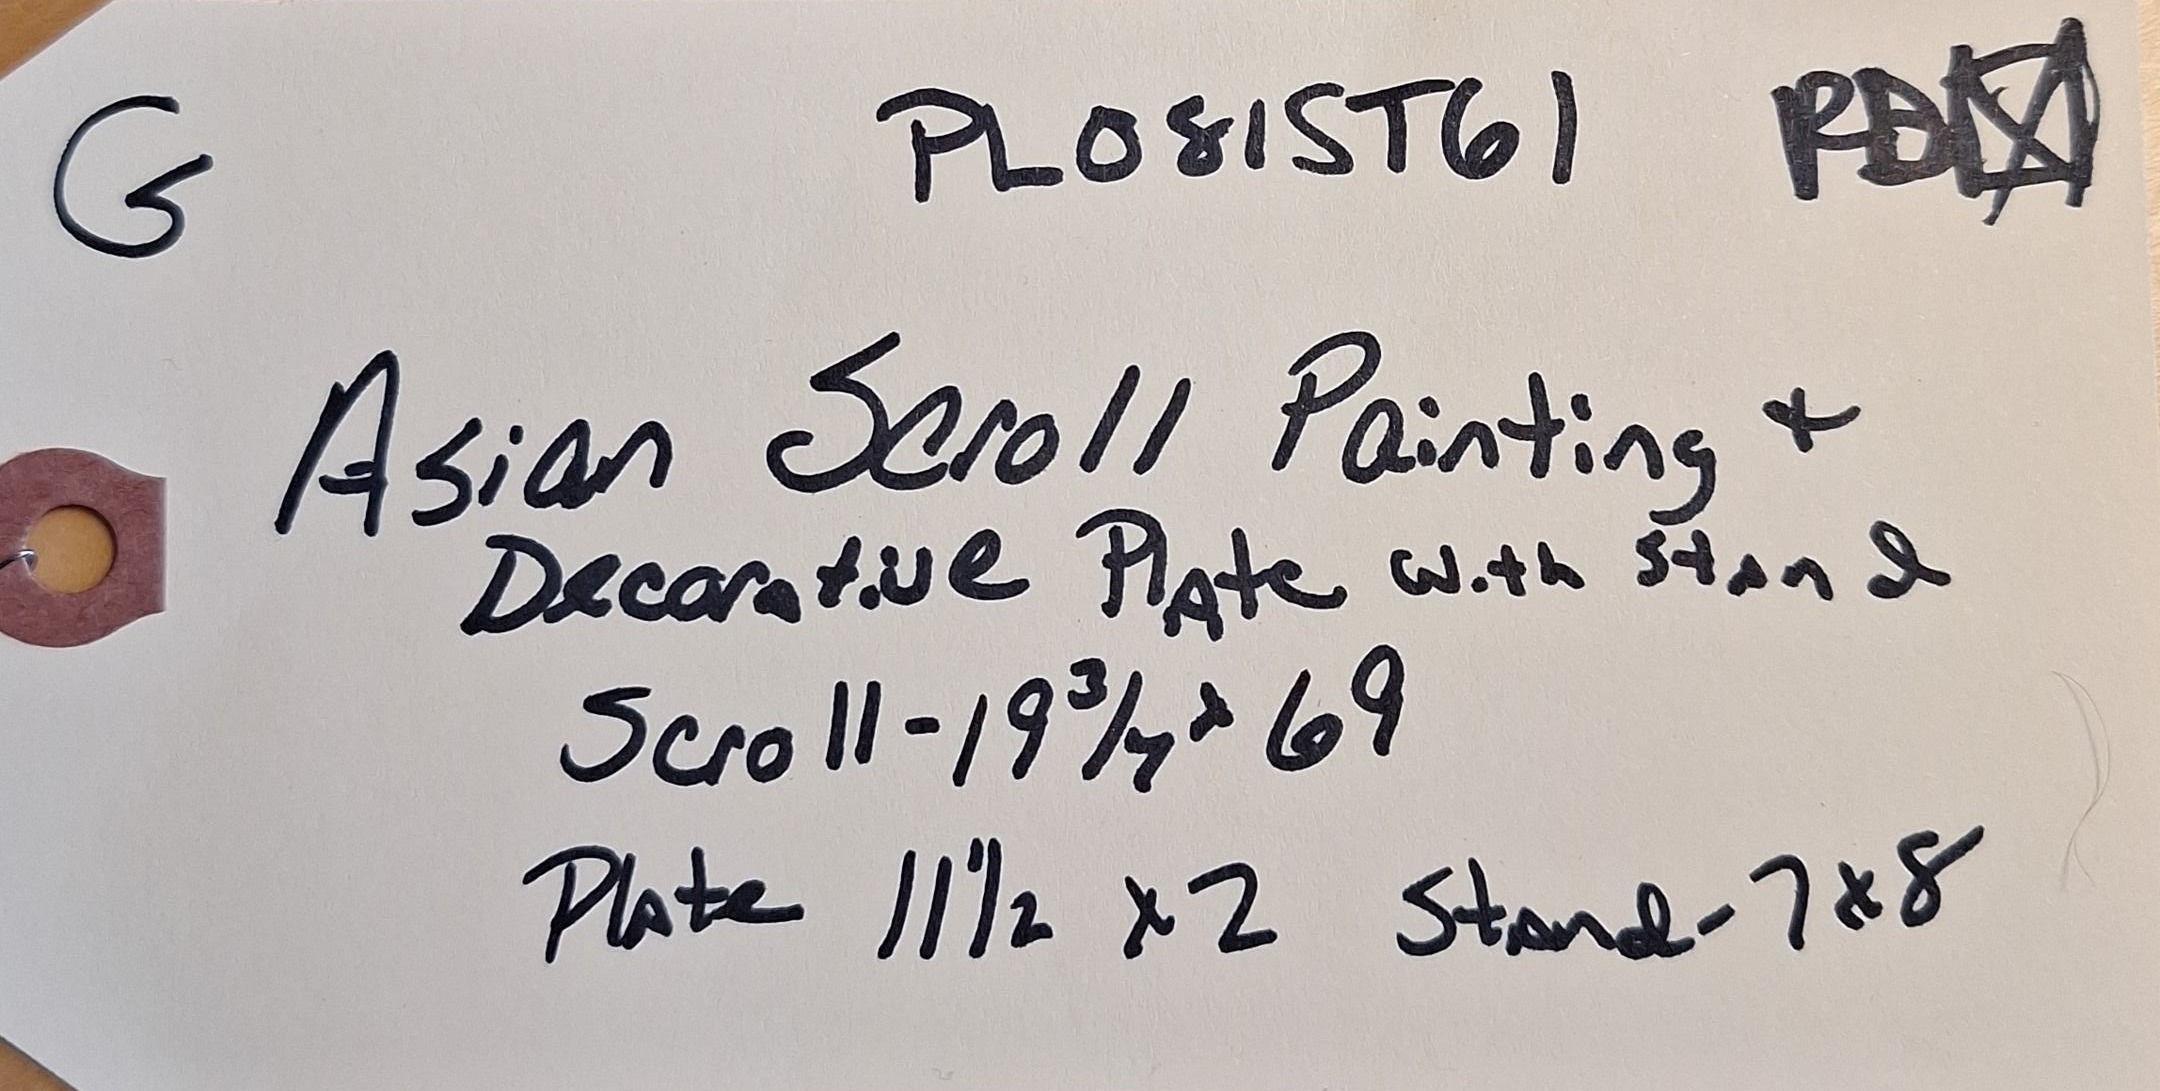 G PL081ST61
Asian Scroll Painting +
Decorative Plate with Stand
Scroll - 19 3/4 x 69
Plate 11 1/2 x 2 Stand - 7 x 8